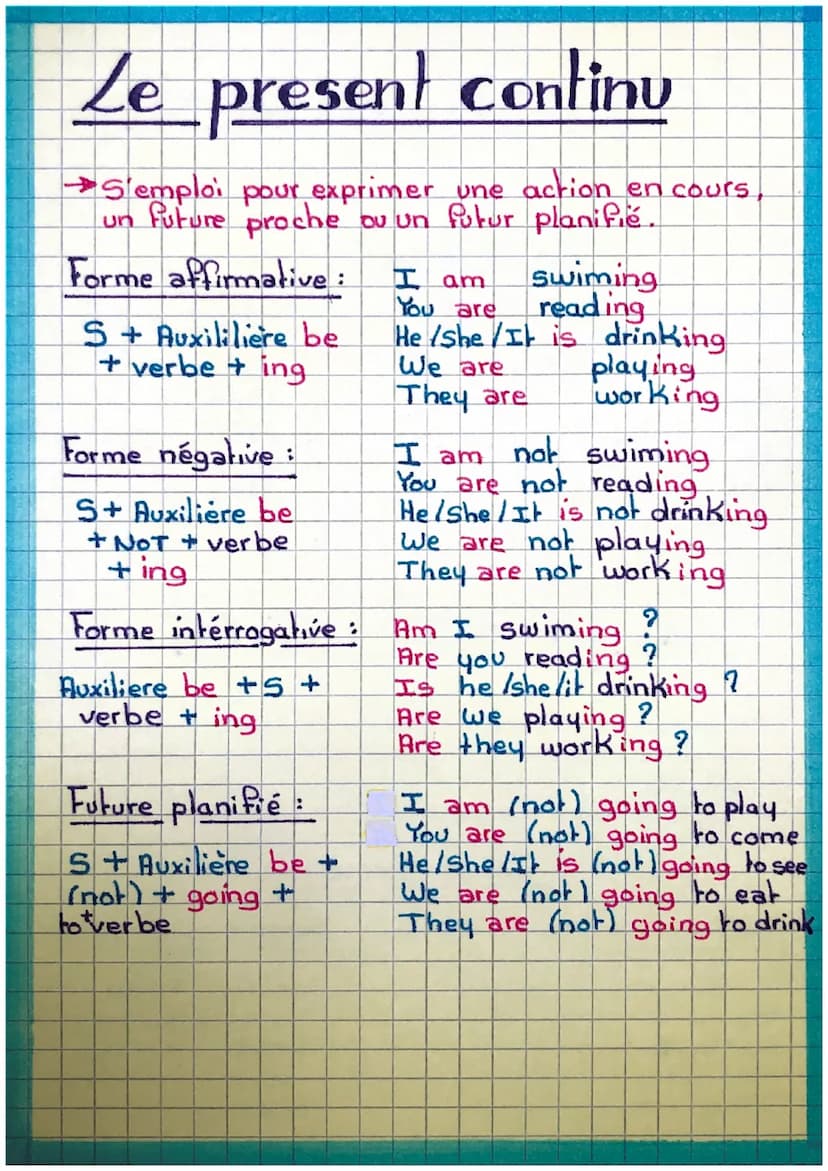 Le present continu
→ S'emploi pour exprimer une action en cours,
un future proche ou un futur planifié.
Forme affirmative :
S + Auxililière be
+ verbe + ing
I am swiming
You are reading
He /She /It is drinking
We are playing
They are working
Forme négative :
S + Auxilière be
+ NOT + verbe
+ ing
I am not swiming
You are not reading
He/She/It is not drinking
We are not playing
They are not working
Forme intérrogative :
Auxiliere be + S +
verbe + ing
Am I swiming ?
Are you reading ?
Is he /she/it drinking ?
Are we playing ?
Are they working ?
Future planifié :
S + Auxilière be +
(not) + going +
to + verbe
I am (not) going to play
You are (not) going to come
He/She/It is (not) going to see
We are (not) going to eat
They are (not) going to drink